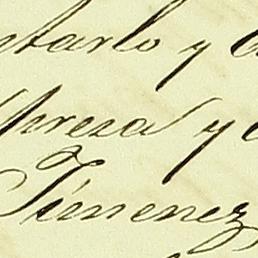 ntarlo y
presa y
Jimenez